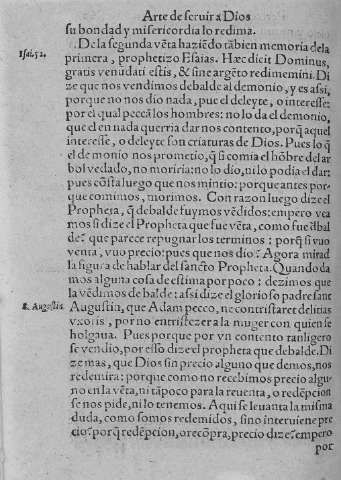 Arte de seruir a Dios
su bondad y misericordia lo redima.
Isai. 52.
De la segunda vẽta haziẽdo tãbien memoria dela
primera, prophetizo Esaias. Hæc dicit Dominus,
gratis venũdati estis, & sine argẽto redimemini. Di
ze que nos vendimos debalde al demonio, y es assi,
porque no nos dio nada, pue el deleyte, o interesse:
por el qual peccã los hombres: no lo da el demonio,
que el en nada querria dar nos contento, porq̃ aquel
interesse, o deleyte son criaturas de Dios. Pues lo q̃
el demonio nos prometio, q̃ si comia el hõbre del ar
bol vedado, no moriria: no lo dio, ni lo podia el dar:
pues cõsta luego que nos mintio: porque antes por-
que comimos, morimos. Con razon luego dize el
Propheta, q̃ debalde fuymos vẽdidos: empero vea
mos si dize el Propheta que fue vẽta, como fue d̃bal
de: que parece repugnar los terminos: porq̃ si vuo
venta, vuo precio: pues que nos dio? Agora mirad
la figura de hablar del sancto Propheta. Quando da
mos alguna cosa de estima por poco: dezimos que
la vẽdimos de balde: assi dize el glorioso padre sant
S. Augustin.
Augustin, que Adam pecco, ne contristaret delitias
vxoris, por no entristezer a la muger con quien se
holgaua. Pues porque por vn contento tan ligero
se vendio, por esso dize el propheta que debalde. Di
ze mas, que Dios sin precio alguno que demos, nos
redemira: porque como no recebimos precio algu-
no en la vẽta, ni tãpoco para la reuenta, o redẽpcion
se nos pide, ni lo tenemos. Aqui se leuanta la misma
duda, como somos redemidos, sino interuiene pre
cio? porq̃ redẽpcion, o recõpra, precio dize: empero
por